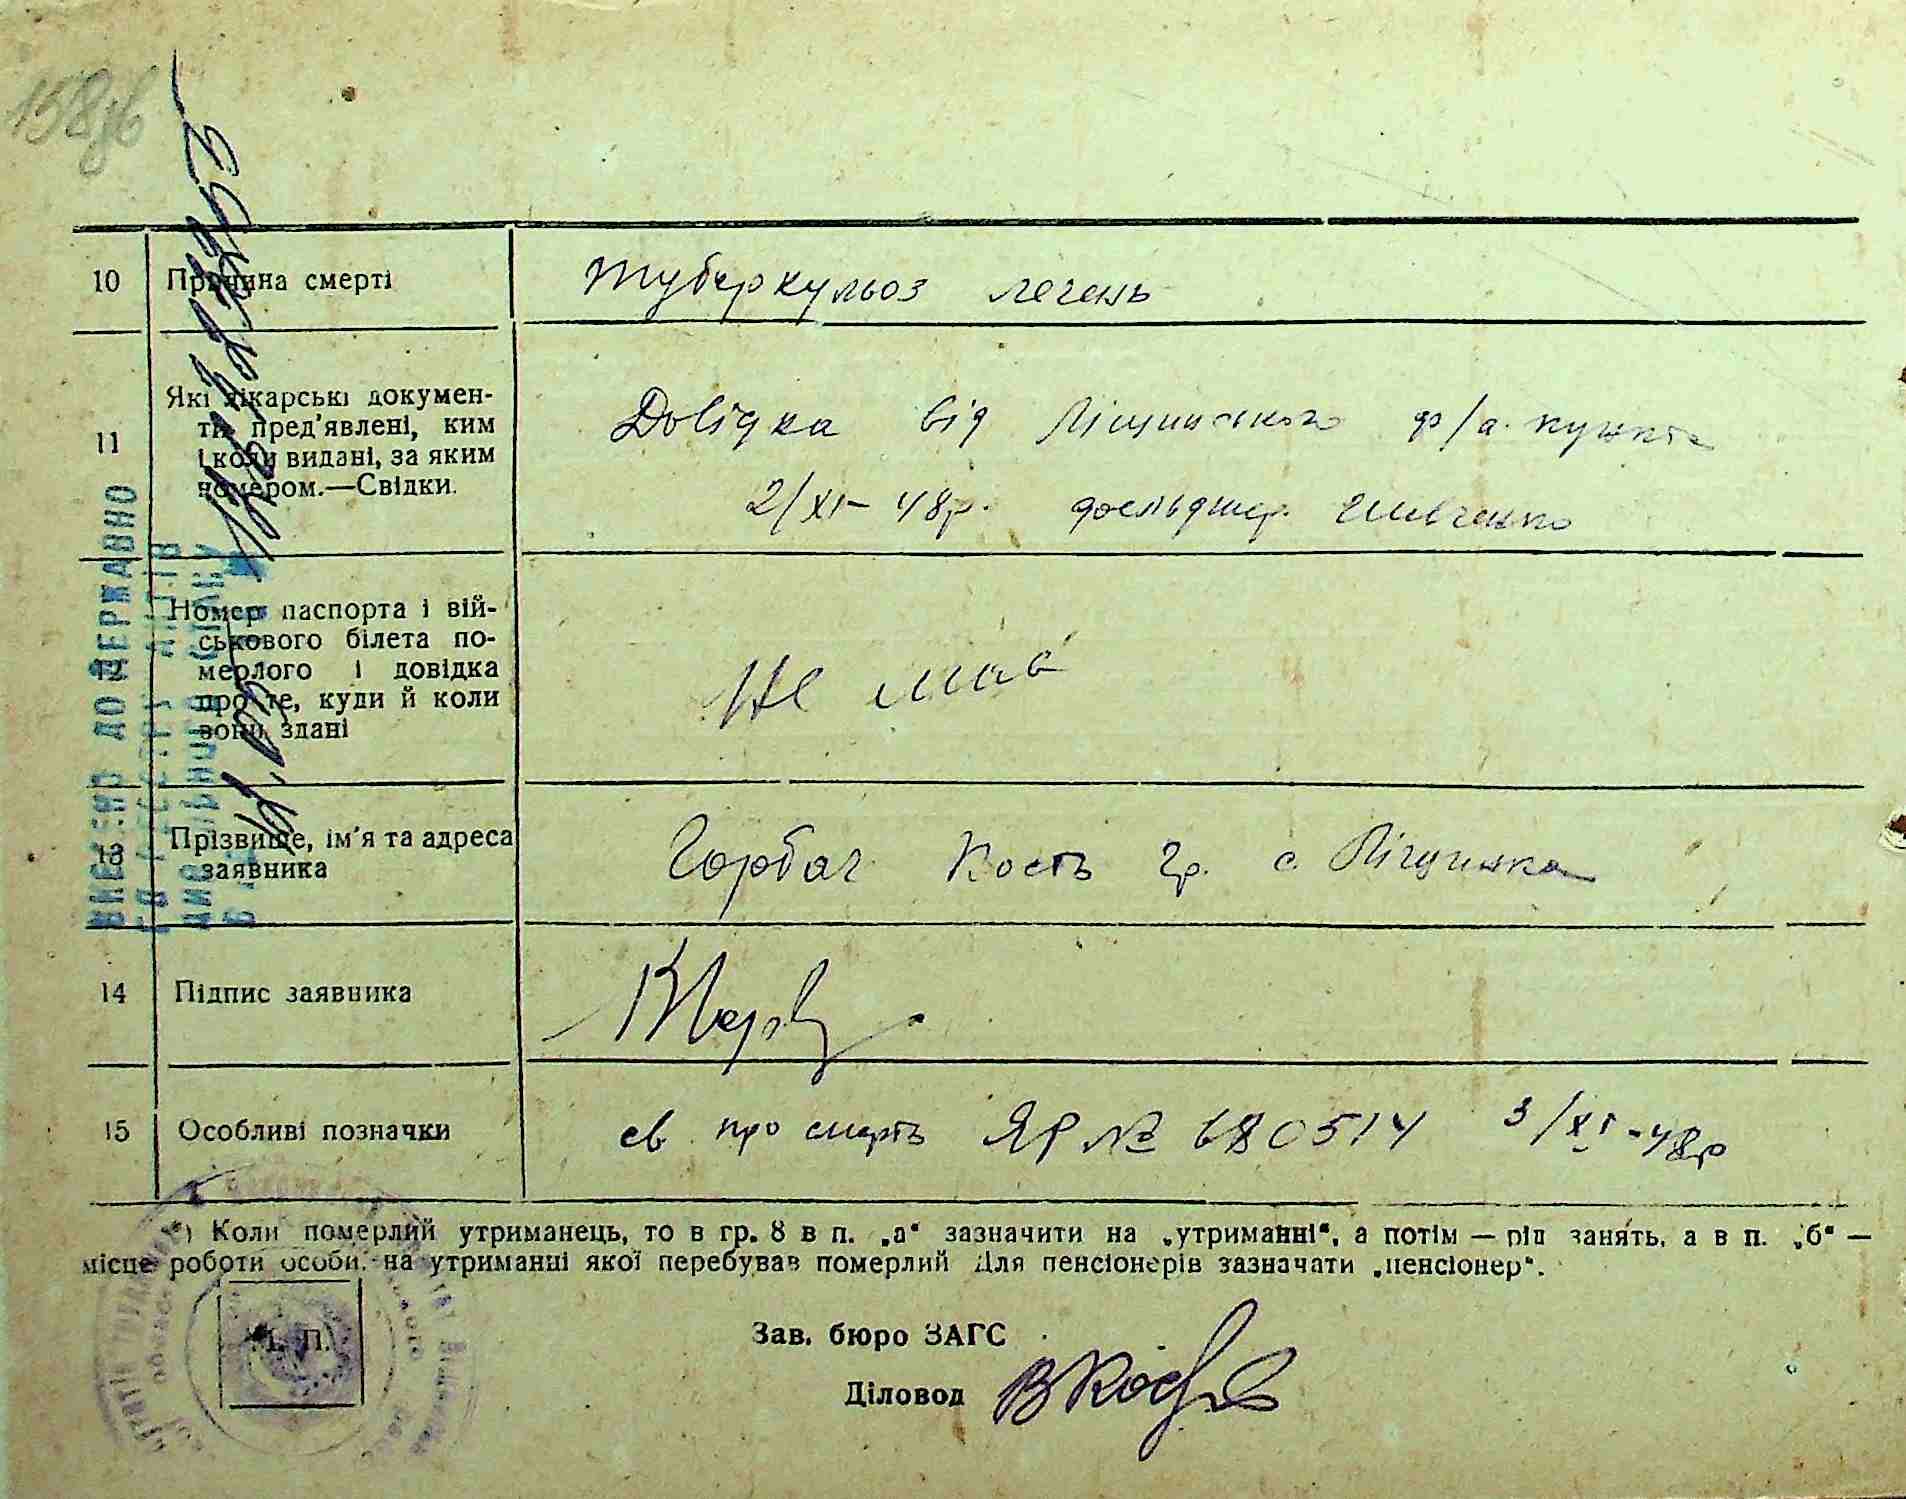 158зв
10 Причина смерті туберкульоз легень
11 Які лікарські докумен-
ти пред'явлені, ким
і коли видані, за яким
номером.—Свідки.
Довідка від Ліщинського ф/а. пункта
2/XI-48р. фельдшер. Шевченко
12 Номер паспорта і вій-
ськового білета по-
мерлого і довідка
про те, куди й коли
вони здані
Не мав
13 Прізвище, ім'я та адреса
заявника
Горбач Кость гр. с. Ліщинка
14 Підпис заявника
15 Особливі позначки св. про смерть ЯР № 680514 3/XI-48р
*) Коли померлий утриманець, то в гр. 8 в п. „а“ зазначити на „утриманні“, а потім — рід занять, а в п. „б“ —
місце роботи особи, на утриманні якої перебував померлий Для пенсіонерів зазначати „пенсіонер“.
М. П.
Зав. бюро ЗАГС
Діловод
ВНЕСЕНО ДО ДЕРЖАВНО